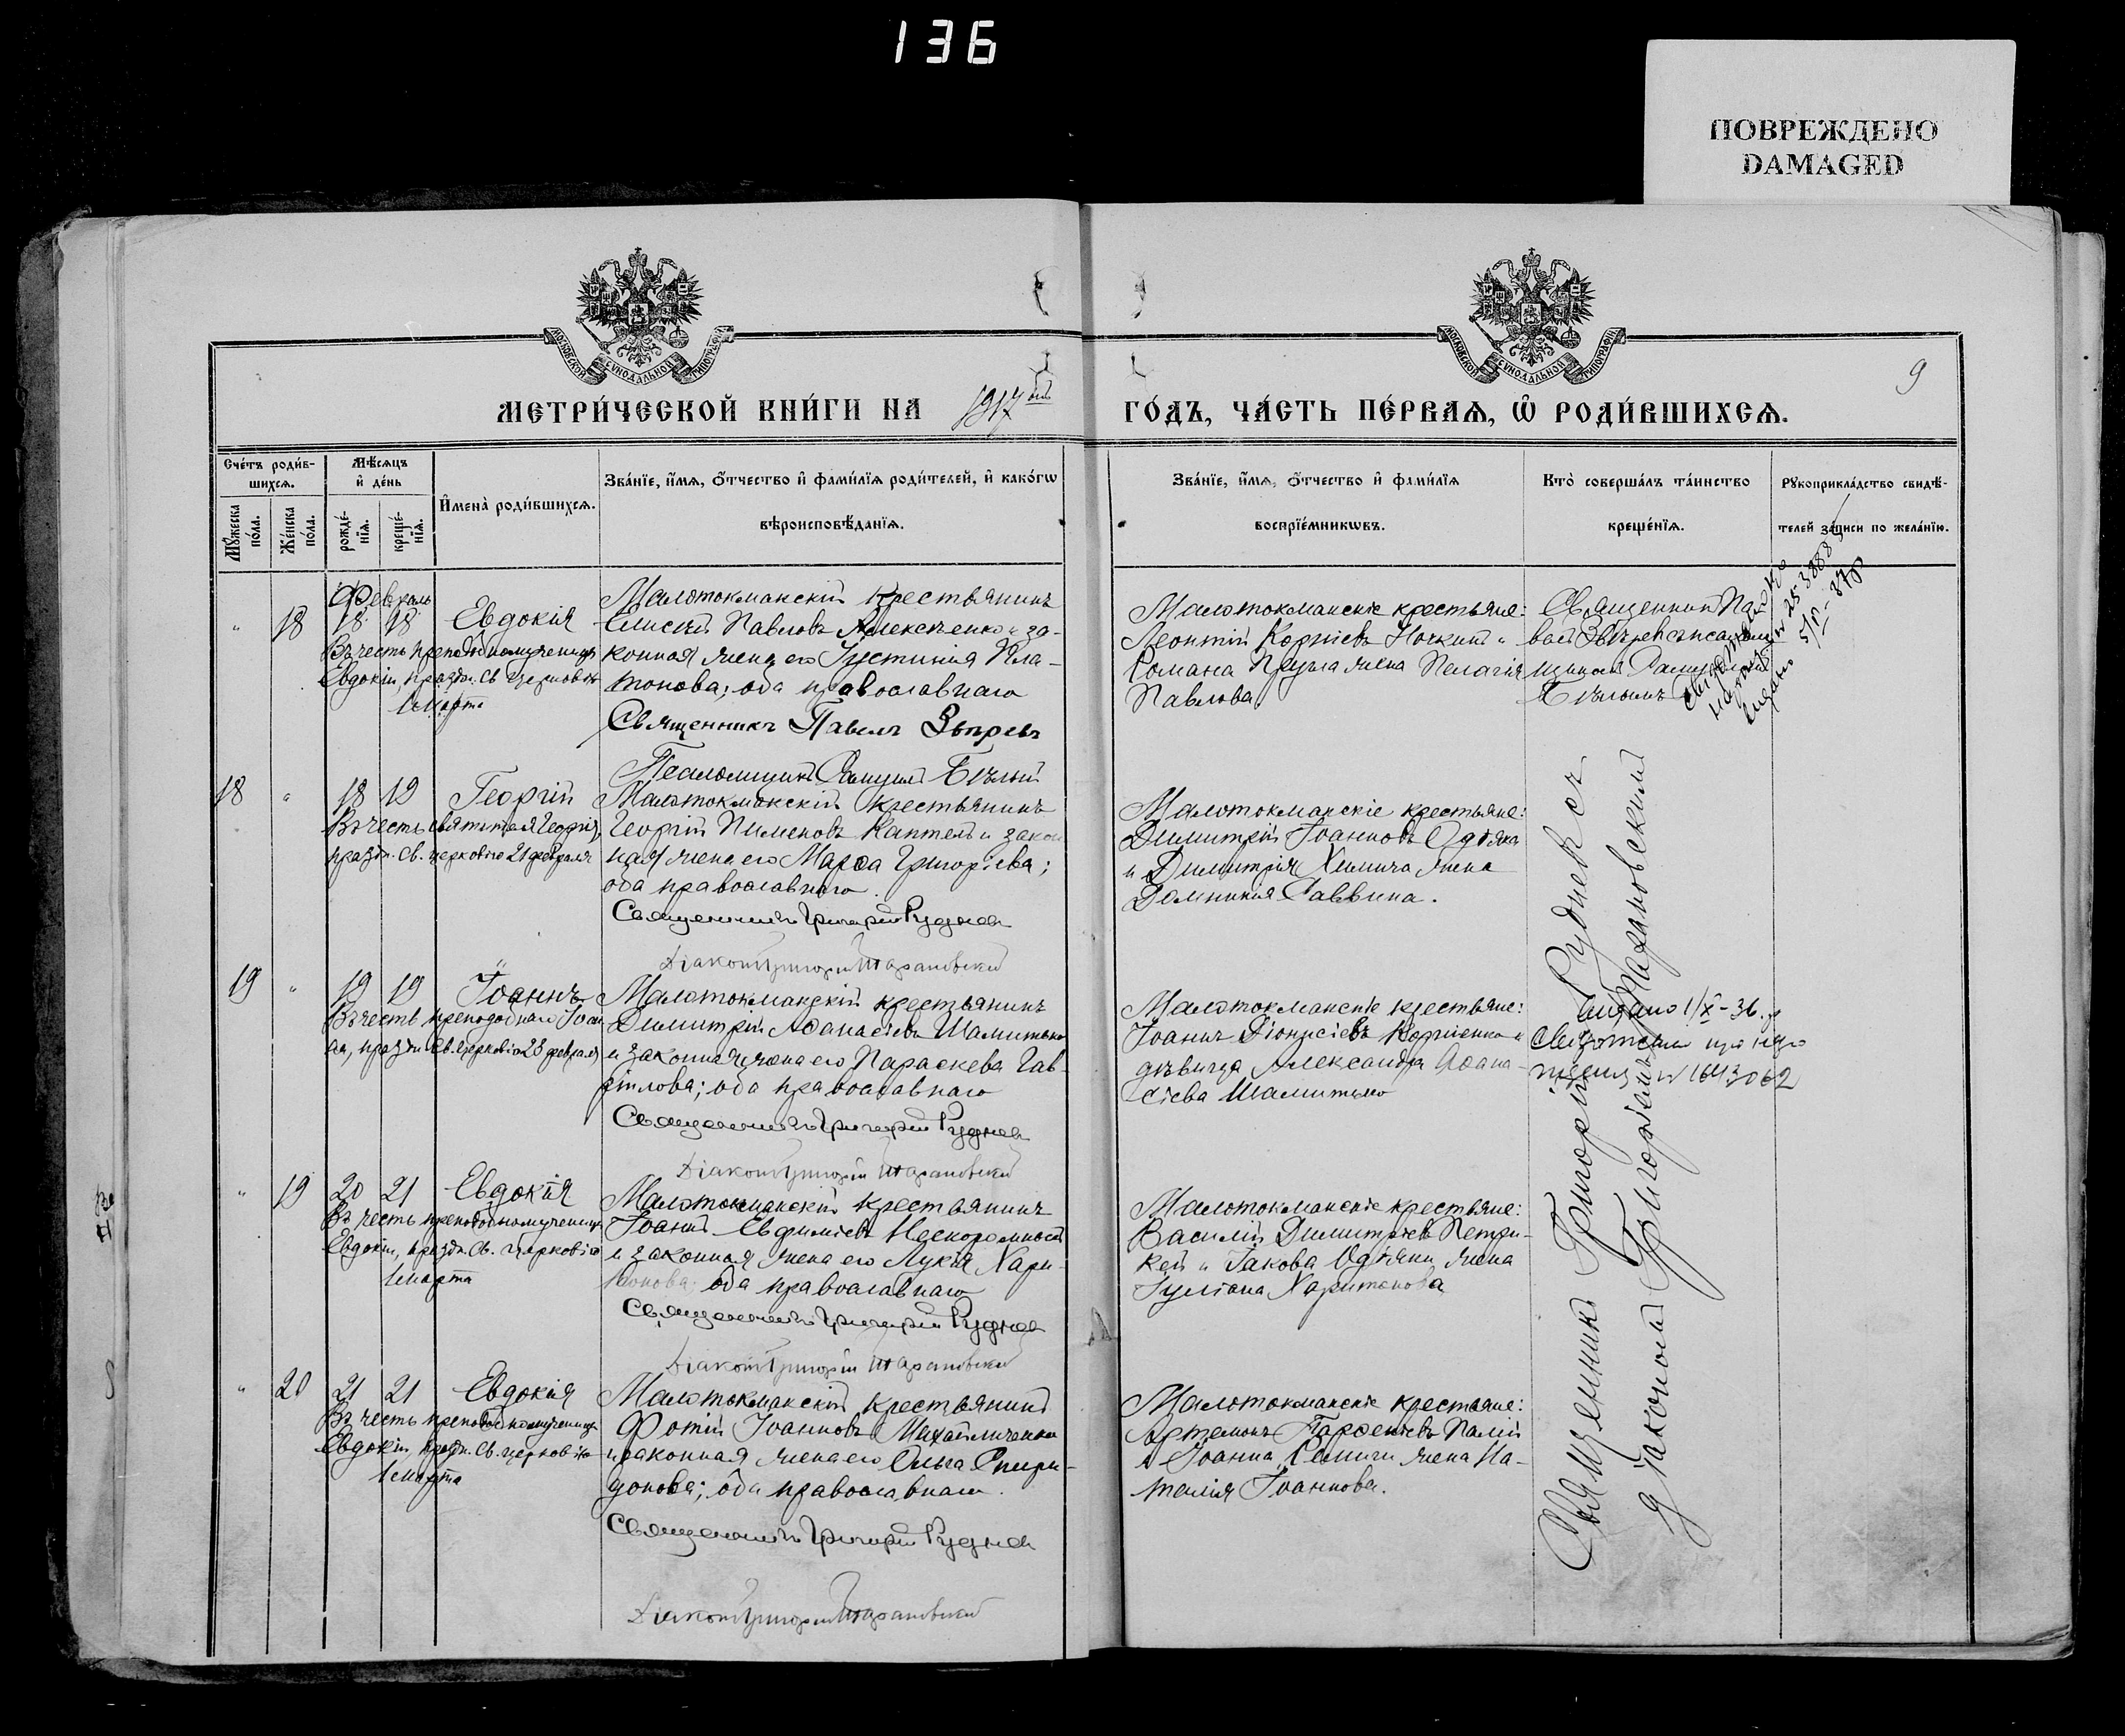 136
ПОВРЕЖДЕНО
DAMAGED
МОСКОВСКОЙ СѴНОДАЛЬНОЙ ТИПОГРАФІИ
МОСКОВСКОЙ СѴНОДАЛЬНОЙ ТИПОГРАФІИ
9
МЕТРИ́ЧЕСКОЙ КНИ́ГИ НА 1917 ГО́ДЪ, ЧА́СТЬ ПЕ́РВАѦ, Ѿ РОДИ́ВШИХСѦ.
Сче́тъ роди́в-
шихсѧ.
Мꙋ́жеска по́ла.
Же́нска по́ла.
Мѣ́сѧцъ и҆ де́нь
рожде́-нїѧ.
креще́-нїѧ.
И҆мена̀ роди́вшихсѧ.
Зва́нїе, и҆́мѧ, ѻ҆́тчество и҆ фами́лїѧ роди́телей, и҆ како́гѡ
вѣроисповѣ́данїѧ.
Зва́нїе, и҆́мѧ, ѻ҆́тчество и҆ фами́лїѧ
воспрїе́мникѡвъ.
Кто̀ соверша́лъ та́инство
креще́нїѧ.
Рꙋкоприкла́дство свидѣ́-
телей за́писи по жела́нїю.
Февраль
" 18 18 18 Евдокія
Въ честь преподобномученицы
Евдокіи, праздн. св. церковію
1 марта
Малотокманскій крестьянинъ
Елисей Павловъ Алексѣенко и за-
конная жена его Іустинія Пла-
тонова; оба православнаго
Священникъ Павелъ Звѣревъ
Псаломщикъ Самуилъ Бѣлый
Малотокманскіе крестьяне:
Леонтій Корніевъ и
Романа жена Пелагія
Павлова
Священникъ Па-
велъ Звѣревъ съ псалом-
щикомъ Самуиломъ
Бѣлымъ
18 " 18 19 Георгій
Въ честь святителя Георгія,
праздн. св. церковію 21 февраля
Малотокманскій крестьянинъ
Георгій Пименовъ Каптелъ и закон
ная жена его Марѳа Григорієва;
оба православнаго.
Священникъ Григорій Рудневъ
Діаконъ Григорій Тарановскій
Малотокманскіе крестьяне:
Димитрій Іоанновъ
и Димитрія Химича жена
Домникія Саввина.
19 " 19 19 Іоаннъ
Въ честь преподобнаго Іоан
на, праздн. св. церковію 28 февраля
Малотокманскій крестьянинъ
Димитрій Аѳанасіевъ Шамитько
и законная жена его Параскева Гав-
ріилова; оба православнаго
Священникъ Григорій Рудневъ
Діаконъ Григорій Тарановскій
Малотокманскіе крестьяне:
Іоаннъ Діонисіевъ Корніенко и
дѣвица Александра Аѳана-
сіева Шамитько
видано 1/X-36 р
№ 1643062
" 19 20 21 Евдокія
Въ честь преподобномученицы
Евдокіи, праздн. св. церковію
1 марта
Малотокманскій крестьянинъ
Іоаннъ Евфиміевъ Нескоромный
и законная жена его Лукія Хари-
тонова; оба православнаго
Священникъ Григорій Рудневъ
Діаконъ Григорій Тарановскій
Малотокманскіе крестьяне:
Василій Димитріевъ Петри-
кей и Іакова жена
Іуліана Харитонова
" 20 21 21 Евдокія
Въ честь преподобномученицы
Евдокіи, праздн. св. церковію
1 марта
Малотокманскій крестьянинъ
Фотій Іоанновъ Михайличенко
и законная жена его Ольга Спири-
донова; оба православнаго.
Священникъ Григорій Рудневъ
Діаконъ Григорій Тарановскій
Малотокманскіе крестьяне:
Артемонъ Парѳеніевъ Палій
и Іоанна жена На-
талія Іоаннова.
Священникъ Григорій Рудневъ съ
діакономъ Григоріемъ Тарановскимъ